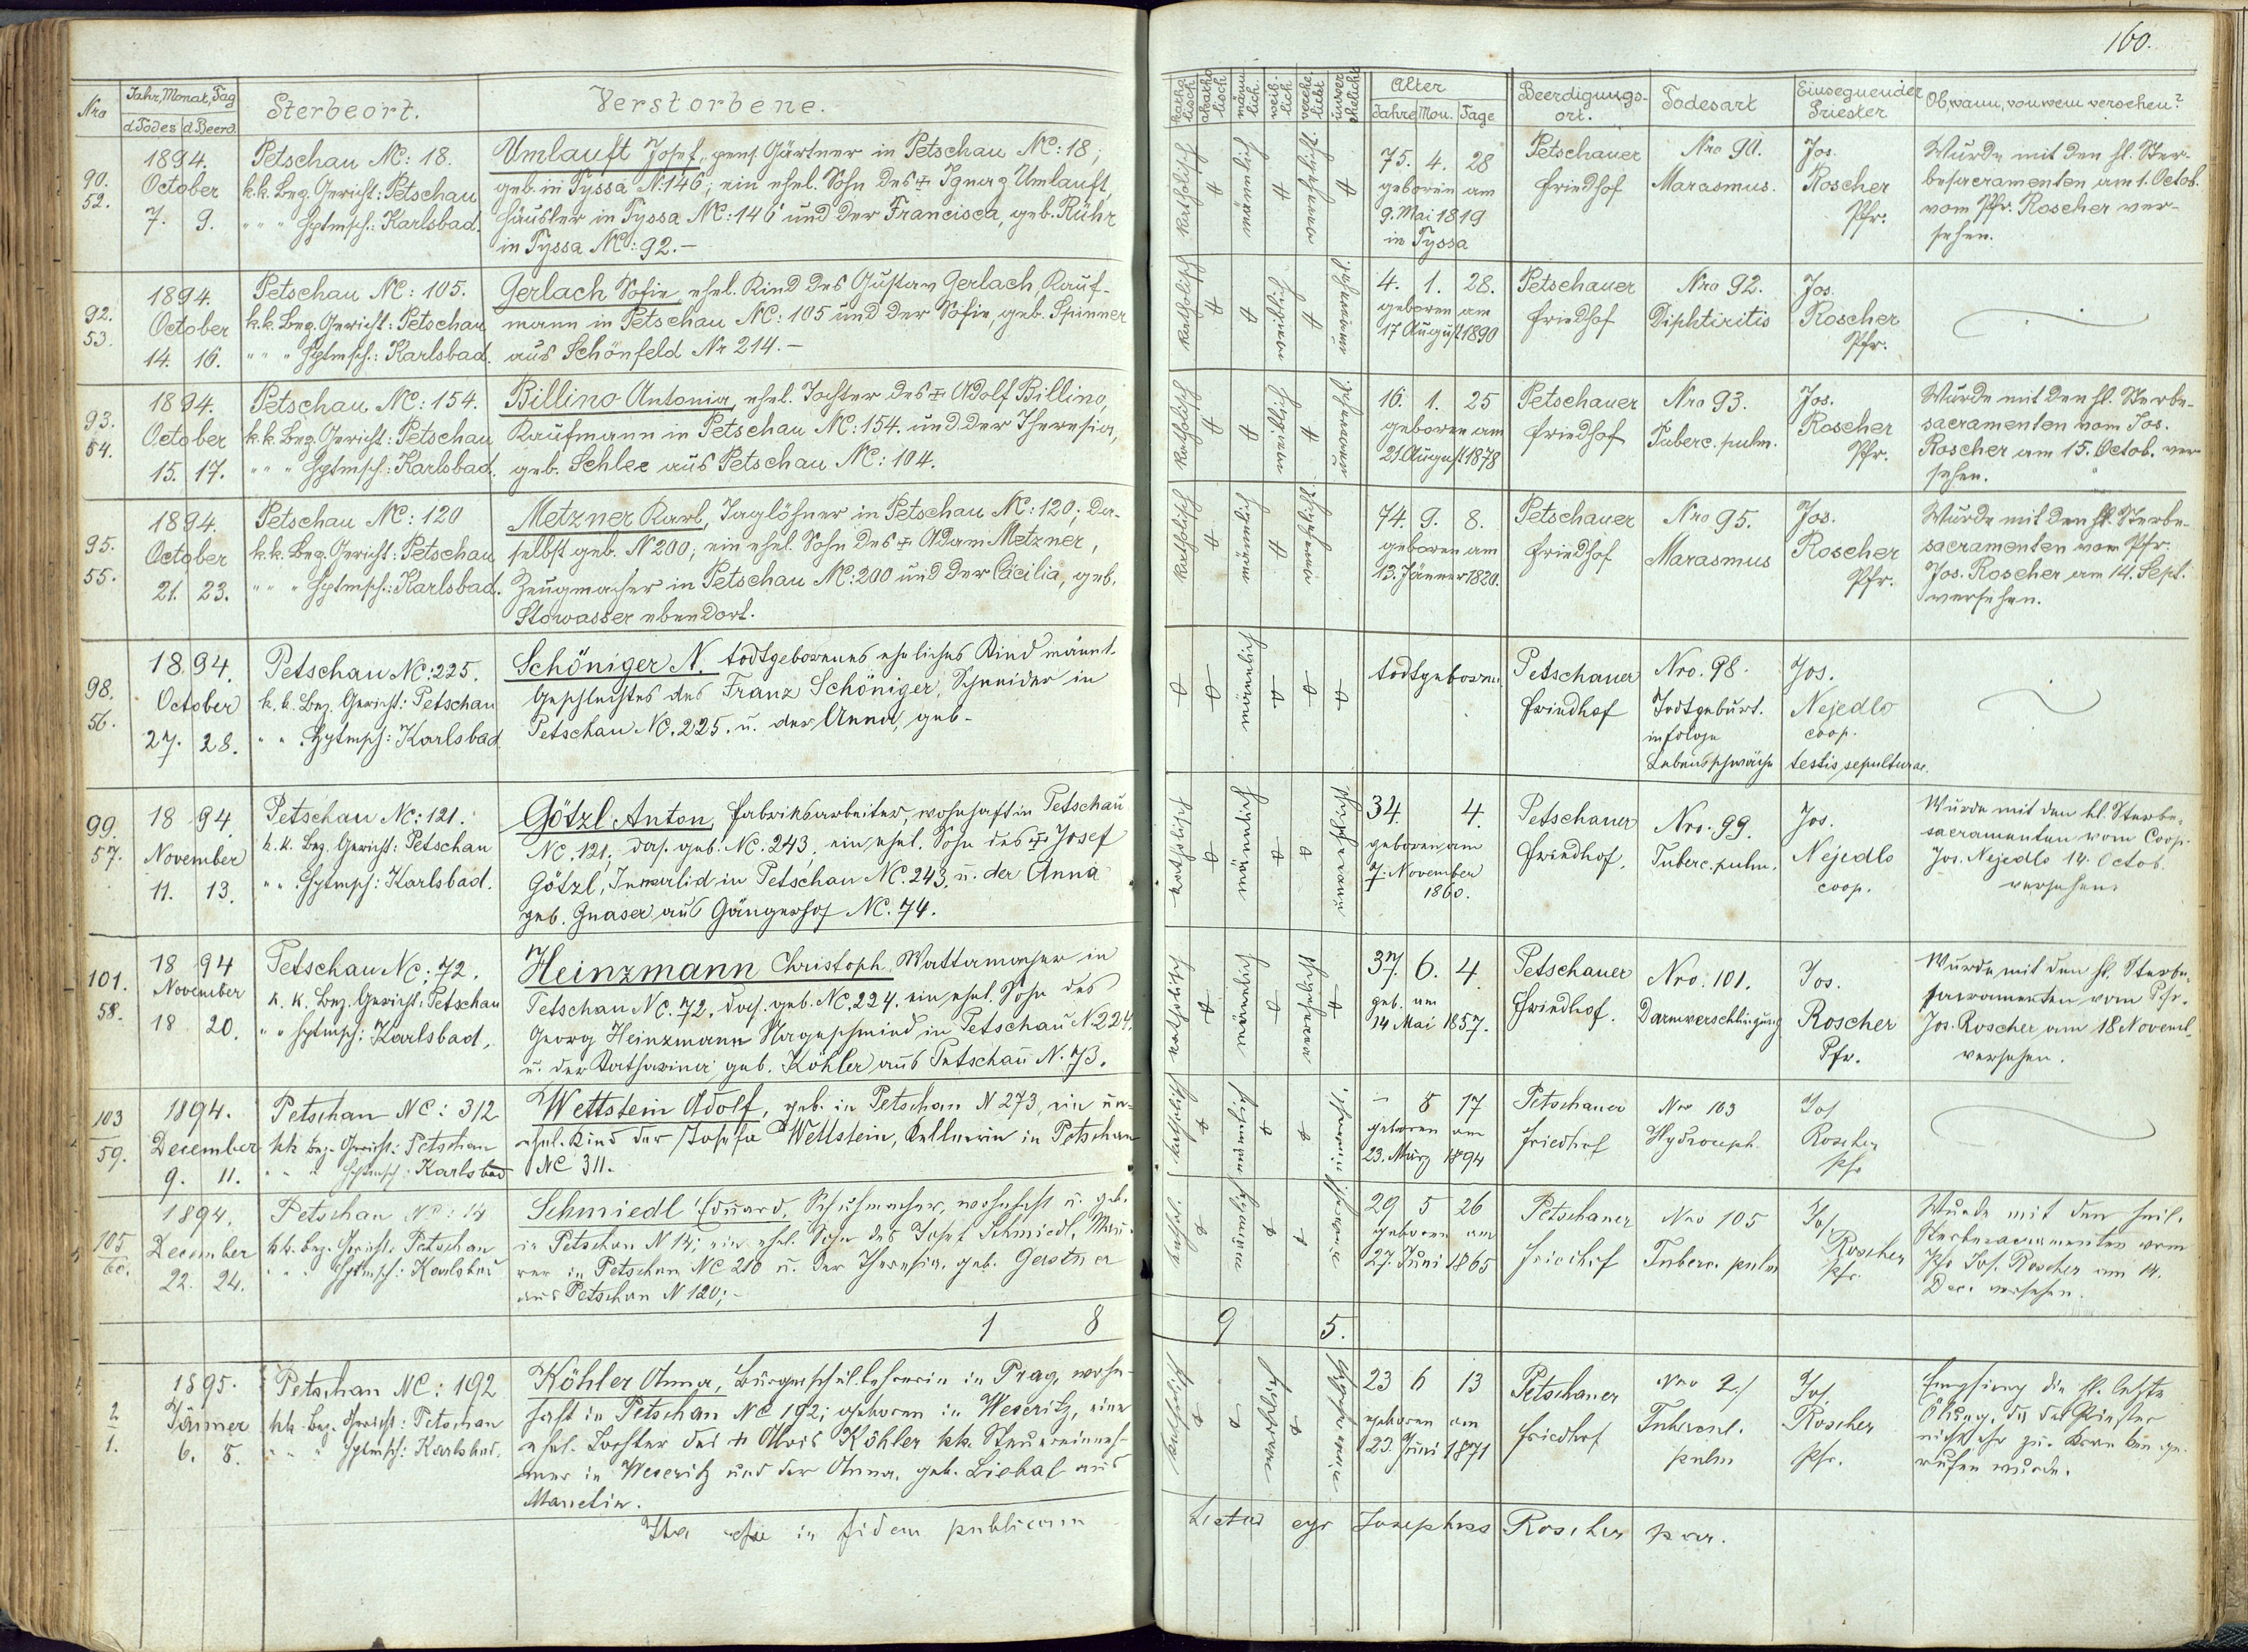 160.
Nro
Jahr, Monat, Tag
d. Todes d. Beerd.
Sterbeort.
Verstorbene.
katho-lisch
akatho-lisch
männ-lich.
weib-lich.
verehe-licht
unver-ehelicht
Alter
Jahre Mon. Tage
Beerdigungs-ort.
Todesart
Einsegnender Priester
Ob, wann, von wem versehen?
90.
52.
1894.
October
7. 9.
Petschau NC: 18.
k.k. Bez. Gericht: Petschau
" " " Hptmsch.: Karlsbad.
Umlauft Josef, pens. Gärtner in Petschau NC: 18;
geb. in Tyssa N: 146; ein ehel. Sohn des ✝ Ignaz Umlauft,
Häusler in Tyssa NC: 146 und der Francisca, geb. Rühr
in Tyssa NC: 92.-
katholisch
männlich
verehelicht
75. 4. 28
geboren am
9. Mai 1819
in Tyssa
Petschauer
Friedhof
Nro 90.
Marasmus.
Jos.
Roscher
Pfr.
Wurde mit den hl. Ster-
besacramenten am 1. Octob.
vom Pfr. Roscher ver-
sehen.
92.
53.
1894.
October
14. 16.
Petschau NC: 105.
k.k. Bez. Gericht: Petschau
" " " Hptmsch.: Karlsbad.
Gerlach Sofie ehel. Kind des Gustav Gerlach, Kauf-
mann in Petschau NC: 105 und der Sofie, geb. Spinner
aus Schönfeld Nr 214.-
katholisch
weiblich
unverehel.
4. 1. 28.
geboren am
17 August 1890
Petschauer
Friedhof
Nro 92.
Diphtiritis
Jos.
Roscher
Pfr.
93.
54.
1894.
October
15. 17.
Petschau NC: 154.
k.k. Bez. Gericht: Petschau
" " " Hptmsch.: Karlsbad.
Billino Antonia, ehel. Tochter des ✝ Adolf Billino,
Kaufmann in Petschau NC: 154. und der Theresia,
geb. Schlee aus Petschau NC: 104.
katholisch
weiblich
unverehel.
16. 1. 25
geboren am
21. August 1878
Petschauer
Friedhof
Nro 93.
Tuberc. pulm.
Jos.
Roscher
Pfr.
Wurde mit den hl. Sterbe-
sacramenten vom Jos.
Roscher am 15. Octob. ver
sehen.
95.
55.
1894.
October
21. 23.
Petschau NC: 120
k.k. Bez. Gericht: Petschau
" " " Hptmsch.: Karlsbad.
Metzner Karl, Taglöhner in Petschau NC: 120; da-
selbst geb. N 200; ein ehel. Sohn des ✝ Adam Metzner,
Zeugmacher in Petschau NC: 200 und der Cäcilia, geb.
Stowasser ebendort.
katholisch
männlich
verehelicht
74. 9. 8.
geboren am
13. Jänner 1820.
Petschauer
Friedhof
Nro 95.
Marasmus
Jos.
Roscher
Pfr.
Wurde mit den hl. Sterbe-
sacramenten vom Pfr.
Jos. Roscher am 14. Sept.
versehen.
98.
56.
1894.
October
27. 28.
Petschau NC: 225.
k.k. Bez. Gericht: Petschau
" " Hptmsch: Karlsbad
Schöniger N. todtgeborenes eheliches Kind männl.
Geschlechtes des Franz Schöniger, Schneider in
Petschau NC. 225. u. der Anna, geb-
männlich
todtgeboren.
Petschauer
Friedhof
Nro. 98.
Todtgeburt.
infolge
Lebensschwäche
Jos.
Nejedlo
coop.
testis sepulturae.
99.
57.
1894.
November
11. 13.
Petschau NC: 121.
k.k. Bez. Gericht: Petschau
" " Hptmsch: Karlsbad.
Götzl Anton, Fabriksarbeiter, wohnhaft in Petschau
NC. 121; das. geb. NC. 243, ein ehel. Sohn des ✝ Josef
Götzl, Invalid in Petschau NC. 243. u. der Anna
geb. Gnaser aus Gängerhof NC. 74.
katholisch
männlich
34. 4.
geboren am
7. November
1860.
Petschauer
Friedhof.
Nro. 99.
Tuberc. pulm.
Jos.
Nejedlo
coop.
Wurde mit den hl. Sterbe-
sacramenten vom Coop.
Jos. Nejedlo 14. Octob.
versehen.
101.
58.
1894
November
18 20.
Petschau NC: 72.
k.k. Bez. Gericht: Petschau
" " Hptmsch: Karlsbad,
Heinzmann Christoph, Wattamacher in
Petschau NC. 72, das. geb. NC. 224. ein ehel. Sohn des
Georg Heinzmann Nagelschmied in Petschau N 224.
u. der Katharina, geb. Köhler aus Petschau N. 73.
katholisch
männlich
verehelicht
37. 6. 4.
geb. am
14 Mai 1857.
Petschauer
Friedhof.
Nro. 101.
Darmverschlingung
Jos.
Roscher
Pfr.
Wurde mit den hl. Sterbe-
sacramenten vom Pfr.
Jos. Roscher am 18 Novemb.
versehen.
103
59.
1894.
December
9. 11.
Petschau NC: 312
kk Bez. Gericht: Petschau
" " " Hptmsch: Karlsbad
Wettstein Adolf, geb. in Petschau N 273, ein un-
ehel. Kind der Josefa Wettstein, Kellnerin in Petschau
NC 311.
katholisch
männlich
– 8 17
geboren am
23. März 1894
Petschauer
Friedhof
Nro 103
Hydroceph
Jos
Roscher
Pfr
105
60.
1894.
December
22. 24.
Petschau NC: 14
kk. Bez. Gericht: Petschau
" " " Hptmsch: Karlsbad
Schmiedl Eduard, Schuhmacher, wohnhaft u. geb.
in Petschau N 14; ein ehel. Sohn des Josef Schmiedl, Mau-
rer in Petschau NC 210 u. der Theresia, geb. Gerstner
aus Petschau N 120;-
kathol.
männlich
29 5 26
geboren am
27. Juni 1865
Petschauer
Friedhof
Nro 105
Tuberc. pulm
Jos.
Roscher
Pfr.
Wurde mit den heil.
Sterbesacramenten vom
Pfr Jos. Roscher am 14.
Dec. versehen.
1 8
9 5.
2
1.
1895.
Jänner
6. 8.
Petschau NC: 192
kk. Bez. Gericht: Petschau
" " " Hptmsch: Karlsbad.
Köhler Anna, Bürgerschullehrerin in Prag, wohn-
haft in Petschau NC 192; geboren in Weseritz, eine
ehel. Tochter des ✝ Alois Köhler kk. Steuereinneh-
mer in Weseritz und der Anna, geb. Liebal aus
Manetin.
katholisch
weiblich
23 6 13
geboren am
23. Juni 1871
Petschauer
Friedhof
Nro 2./
Tubercul.
pulm
Jos.
Roscher
Pfr.
Empfieng die hl. letzte
Ölung, da der Priester
nicht eher zur Kranken ge-
rufen wurde.
Ita esse in fidem publicam
Lectus ego Josephus Roscher par.